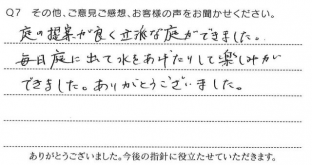 Q7 その他、ご意見ご感想、お客様の声をお聞かせください。
庭の提案が良く立派な庭ができました。
毎日庭に出て水をあげたりして楽しみが
できました。ありがとうございました。
ありがとうございました。今後の指針に役立たせていただきます。